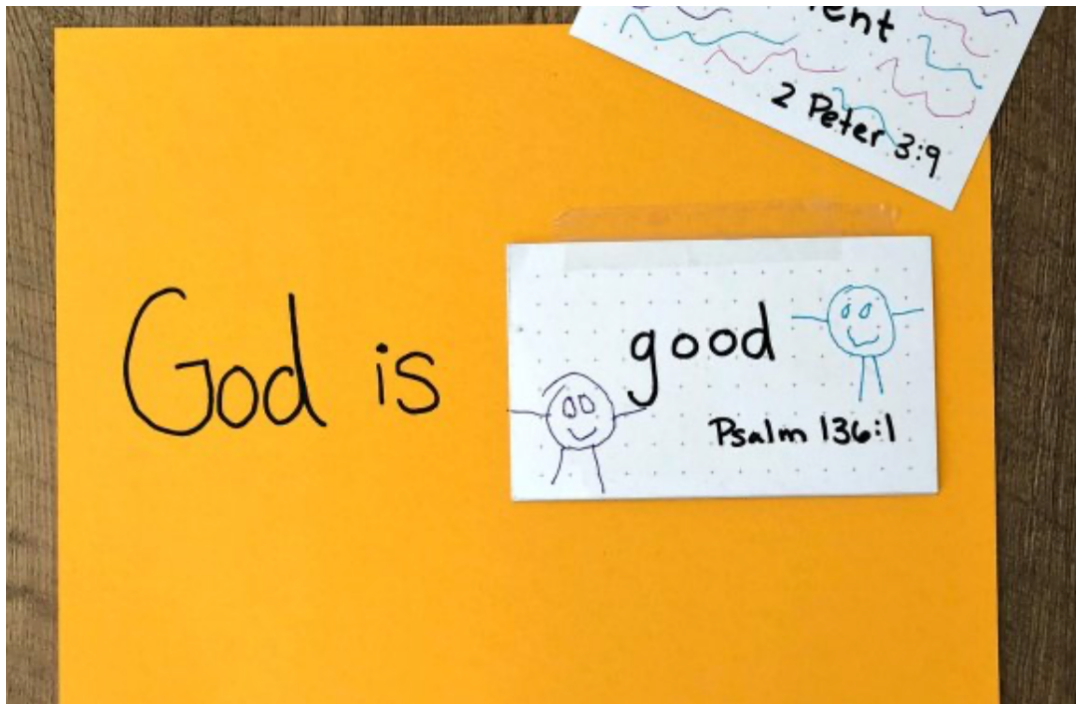 2 Peter 3:9
God is good
Psalm 136:1